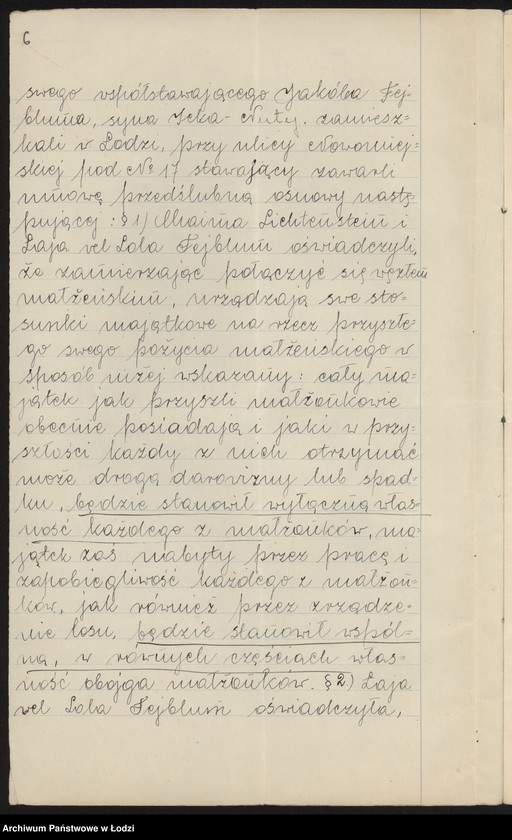 6
swego współstawającego Jakóba Fej-
bluma, syna Icka-Nuty, zamiesz-
kali w Łodzi, przy ulicy Nowomiej-
skiej pod № 17 stawający zawarli
umowę przedślubną osnowy nastę-
pującej: § 1) Chaima Lichtensztein i
Łaja vel Lola Fejblum oświadczyli,
że zamierzając połączyć się węzłem
małżeńskim, urządzają swe sto-
sunki majątkowe na rzecz przyszłe-
go swego pożycia małżeńskiego w
sposób niżej wskazany: cały ma-
jątek jak przyszli małżonkowie
obecnie posiadają i jaki w przy-
szłości każdy z nich otrzymać
może drogą darowizny lub spad-
ku, będzie stanowił wyłączną włas-
ność każdego z małżonków, ma-
jątek zaś nabyty przez pracę i
zapobiegliwość każdego z małżon-
ków, jak również przez zrządze-
nie losu, będzie stanowił wspól-
ną, w równych częściach włas-
ność obojga małżonków. § 2) Łaja
vel Lola Fejblum oświadczyła,
Archiwum Państwowe w Łodzi